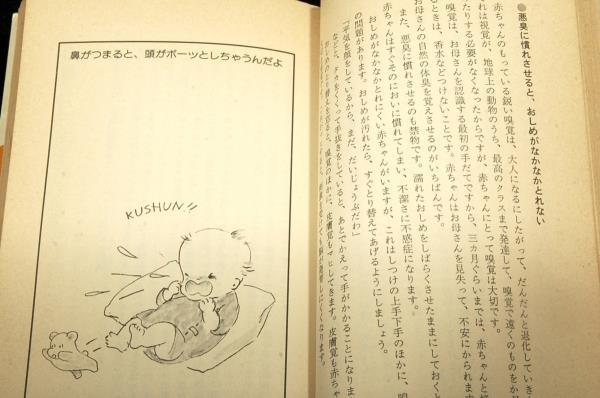 ●悪臭に慣れさせると、おしめがなかなかとれない
赤ちゃんのもっている鋭い嗅覚は、大人になるにしたがって、だんだんと退化していき
これは視覚が、地球上の動物のうち、最高のクラスまで発達して、嗅覚で遠くのものをか
たりする必要がなくなったからですが、赤ちゃんにとって嗅覚は大切です。
嗅覚は、お母さんを認識する最初の手だてですから、三ヵ月ぐらいまでは、赤ちゃんと
るときは、香水などつけないことです。赤ちゃんはお母さんを見失って、不安にかられます
お母さんの自然の体臭を覚えさせるのがいちばんです。
また、悪臭に慣れさせるのも禁物です。濡れたおしめをしばらくさせたままにしておくと
赤ちゃんはすぐそのにおいに慣れてしまい、不潔さに不感症になります。
おしめがなかなかとれにくい赤ちゃんがいますが、これはしつけの上手下手のほかに、嗅
の問題があります。おしめが汚れたら、すぐとり替えてあげるようにしましょう。
「平気な顔をしているから、まだ、だいじょうぶだわ」
などと、タカをくくって手抜きをしていると、あとでかえって手がかかることになりま
おしめのとり替えを怠ると、嗅覚のほかに、皮膚覚もマヒしてきます。皮膚覚も赤ちゃ
鼻がつまると、頭がボーッとしちゃうんだよ
KUSHUN!!